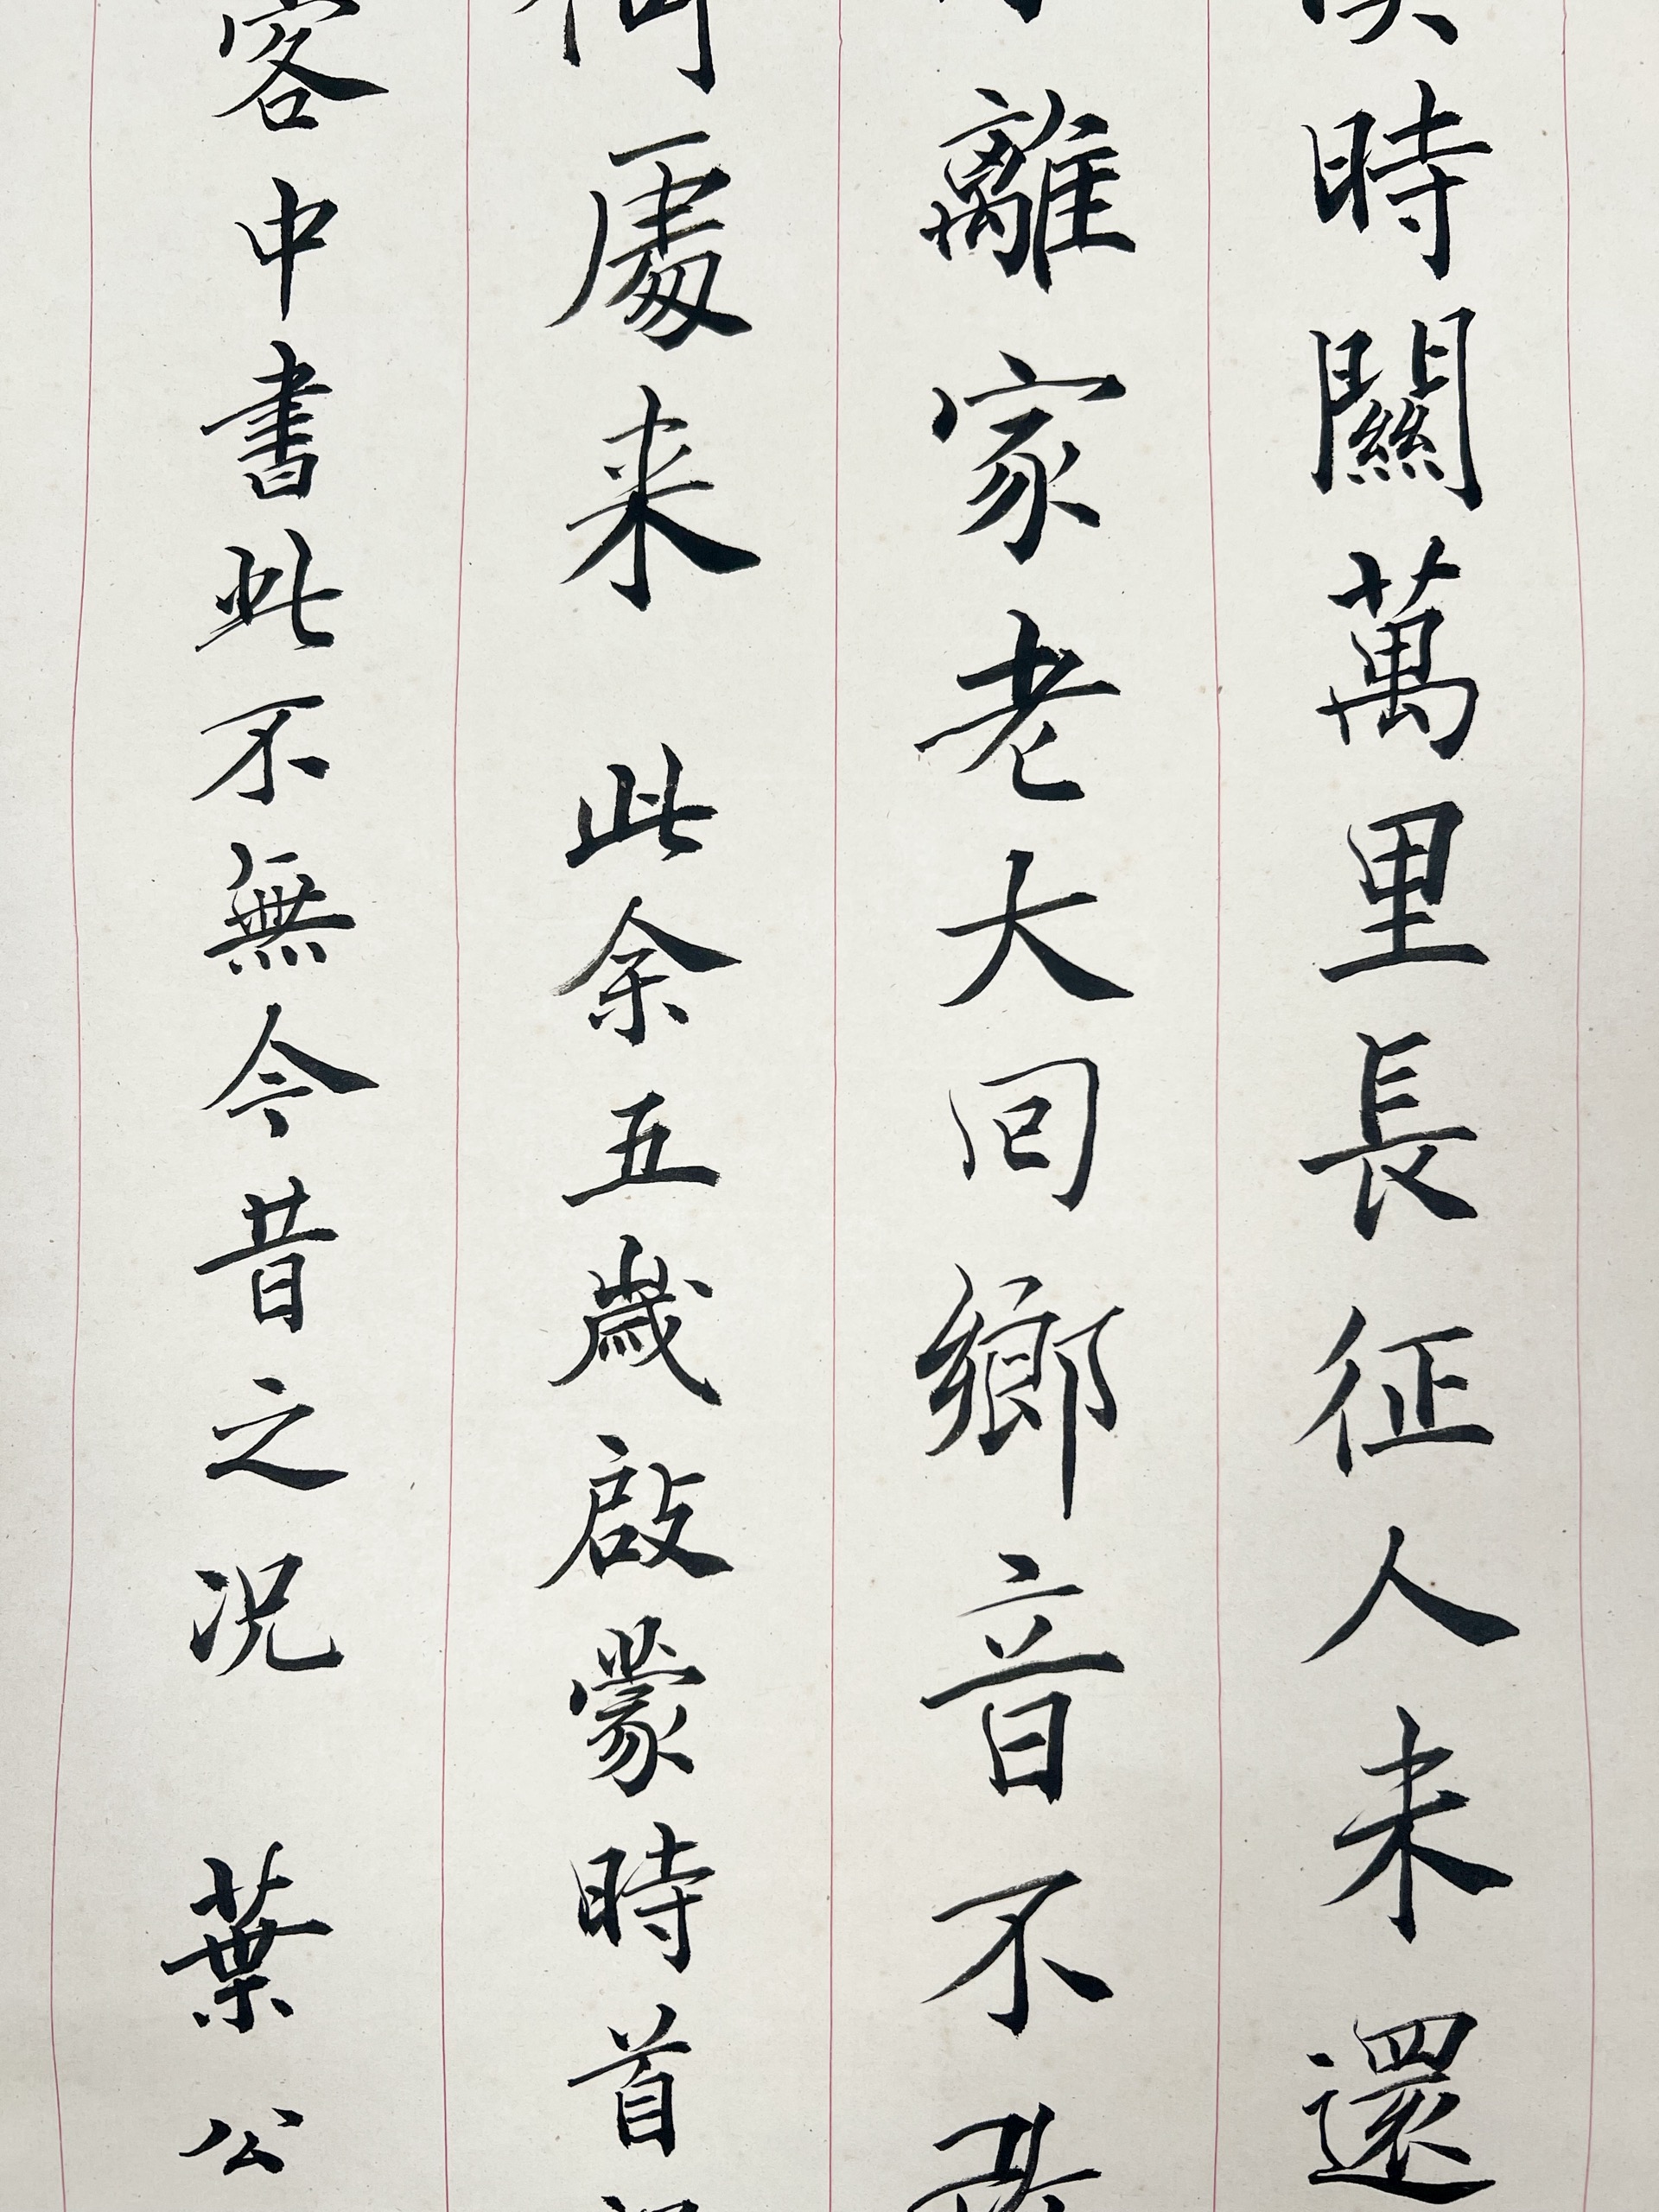 時關萬里長征人未還
離家老大回鄉音不
處来 此余五歲啟蒙時首
客中書此不無今昔之况 葉公